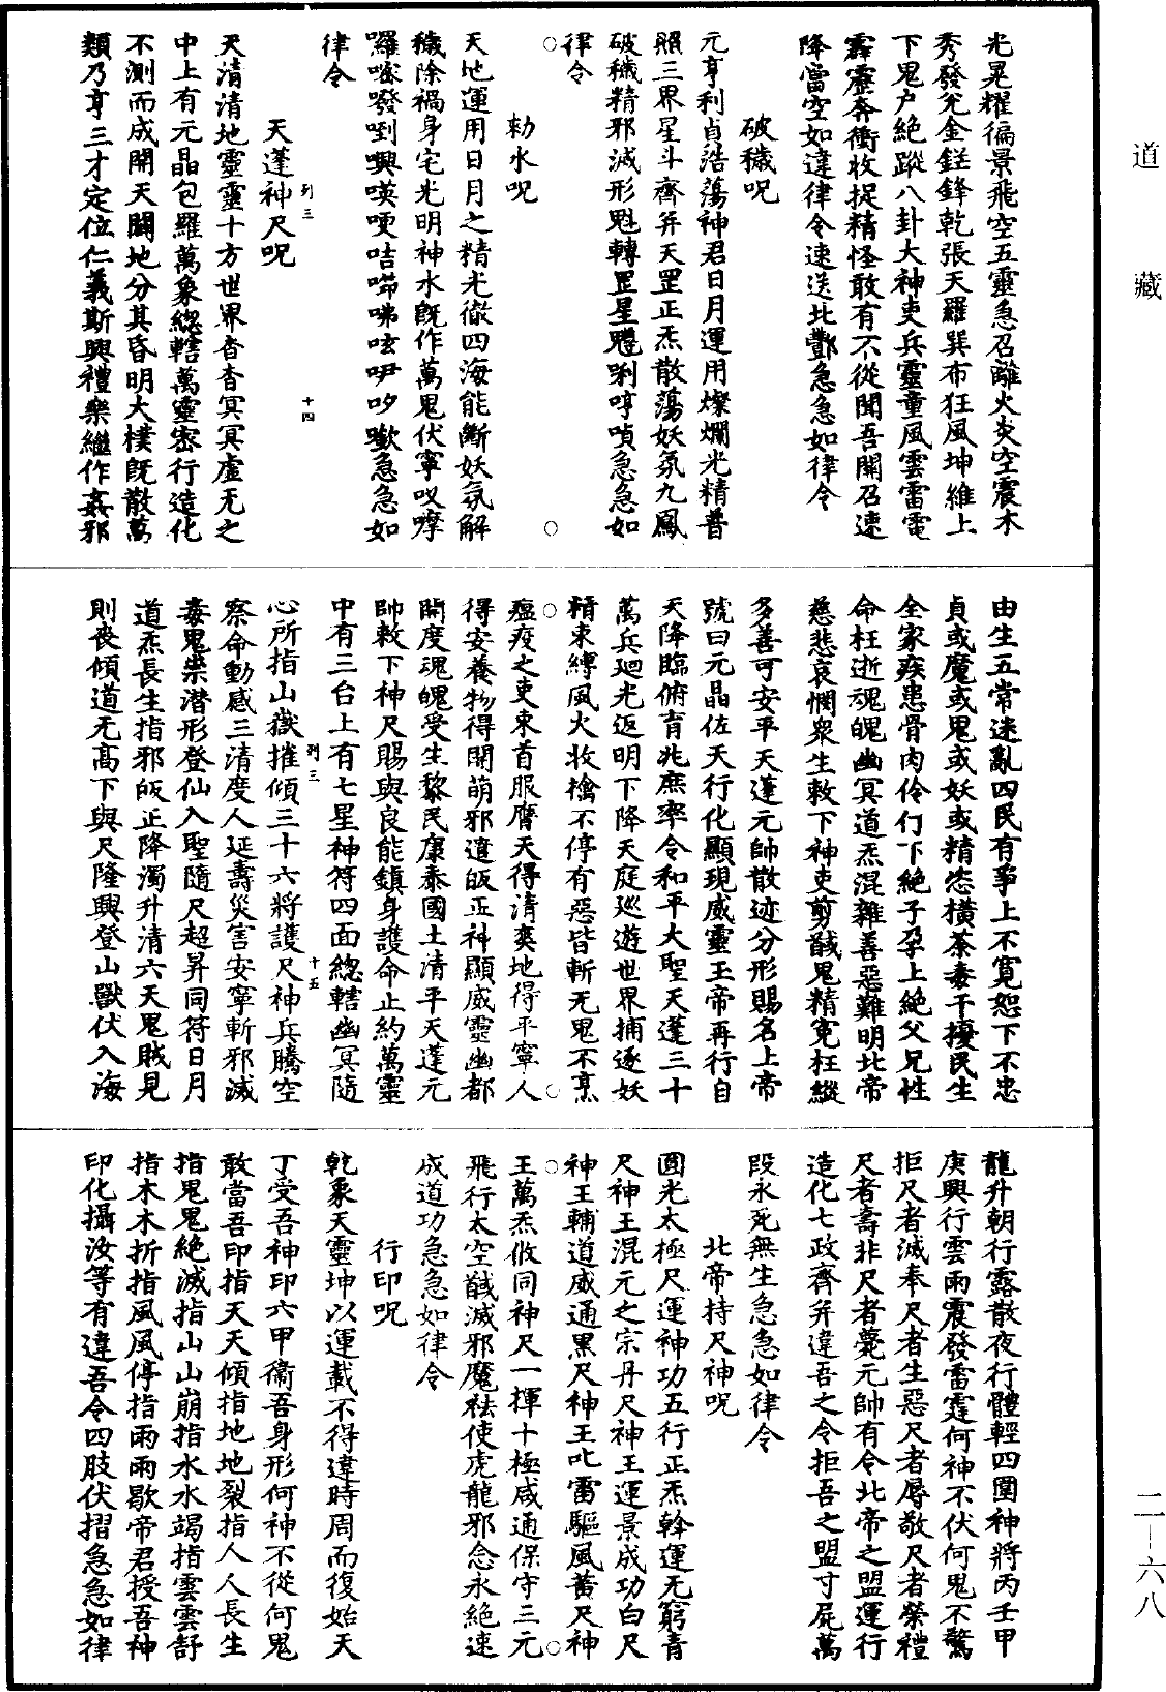 光晃耀徧景飛空五靈急召離火炎空震木
秀發兊金鋥鋒乾張天羅巽布狂風坤維上
下鬼户絶蹤八卦大神吏兵靈童風雲雷電
霹靂奔衝收捉精怪敢有不從聞吾開召速
降當空如違律令速送北酆急急如律令
破穢呪
元亨利貞浩蕩神君日月運用燦爛光精普
照三界星斗齊并天罡正炁散蕩妖氛九鳳
破穢精邪滅形魁轉罡星魒唎哼嗩急急如
律令
勑水呪
天地運用日月之精光徹四海能斷妖氛解
穢除禍身宅光明神水旣作萬鬼伏寧
急急如
律令
天蓬神尺呪
天清清地靈靈十方世界杳杳冥冥虛无之
中上有元晶包羅萬象緫轄萬靈密行造化
不測而成開天闢地分其昏明大樸旣散萬
類乃亨三才定位仁義斯興禮樂繼作姦邪
列三
十四
由生五常迷亂四民有爭上不寛恕下不忠
貞或魔或鬼或妖或精恣橫荼毒干擾民生
全家疾患骨肉伶仃下絶子孕上絶父兄性
命枉逝魂魄幽冥道炁混雜善惡難明北帝
慈悲哀憫衆生敕下神吏剪馘鬼精寃枉縱
多善可安平天蓬元帥散迹分形賜名上帝
號曰元晶佐天行化顯現威靈玉帝再行自
天降臨俯育兆庶率令和平大聖天蓬三十
萬兵廻光返明下降天庭廵遊世界捕逐妖
精束縛風火收擒不停有惡皆斬无鬼不烹
瘟疫之吏束首服膺天得清爽地得平寧人
得安養物得開萌邪違皈正神顯威靈幽都
開度魂魄受生黎民康泰國土清平天蓬元
帥敕下神尺賜與良能鎮身護命止約萬靈
中有三台上有七星神符四面緫轄幽冥隨
心所指山嶽摧傾三十六將護尺神兵騰空
察命動感三清度人延壽災害安寧斬邪滅
毒鬼祟潛形登仙入聖隨尺超昇同符日月
道炁長生指邪皈正降濁升清六天鬼賊見
則喪傾道无高下與尺隆興登山獸伏入海
列三
十五
龍升朝行露散夜行體輕四圍神將丙壬甲
庚興行雲雨震發雷霆何神不伏何鬼不驚
拒尺者滅奉尺者生惡尺者辱敬尺者榮禮
尺者壽非尺者薨元帥有令北帝之盟運行
造化七政齊并違吾之令拒吾之盟寸屍萬
段永死無生急急如律令
北帝持尺神呪
圓光太極尺運神功五行正炁斡運无窮青
尺神王混元之宗丹尺神王運景成功白尺
神王輔道威通黑尺神王叱雷驅風黃尺神
王萬炁攸同神尺一揮十極咸通保守三元
飛行太空馘滅邪魔袪使虎龍邪念永絶速
成道功急急如律令
行印呪
乾象天靈坤以運載不得違時周而復始天
丁受吾神印六甲衞吾身形何神不從何鬼
敢當吾印指天天傾指地地裂指人人長生
指鬼鬼絶滅指山山崩指水水竭指雲雲舒
指木木折指風風停指雨雨歇帝君授吾神
印化攝汝等有違吾令四肢伏摺急急如律
道藏
二-六八